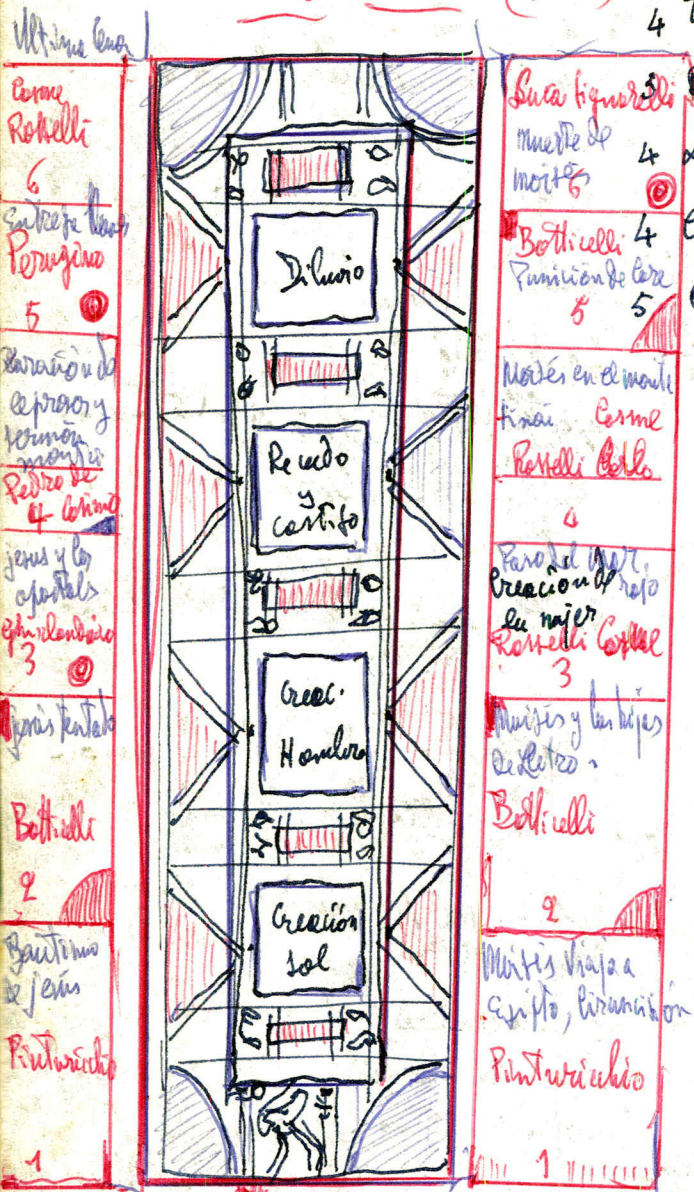 Ultima Cena
Cosme
Rosselli
6
Entrega llaves
Perugino
5
Curación de
leprosos y
sermón
Pedro de
4 Cosimo
jesus y los
apostols
Ghirlandaio
3
jesús tentado
Botticelli
2
Bautismo
de jesús
Pinturicchio
1
Diluvio
Pecado
y
castigo
Creac.
Hombre
Creación
sol
4
Luca Signorelli
3
muerte de
4
moisés
6
Botticelli
4
Punición de Core
5
5
Moisés en el monte
Sinai Cosme
Rosselli
4
Paso del mar
rojo
Creación de
la mujer
Rosselli Cosme
3
Moisés y las hijas
de Jetro.
Botticelli
2
Moisés viaja a
Egipto, Circuncisión
Pinturicchio
1